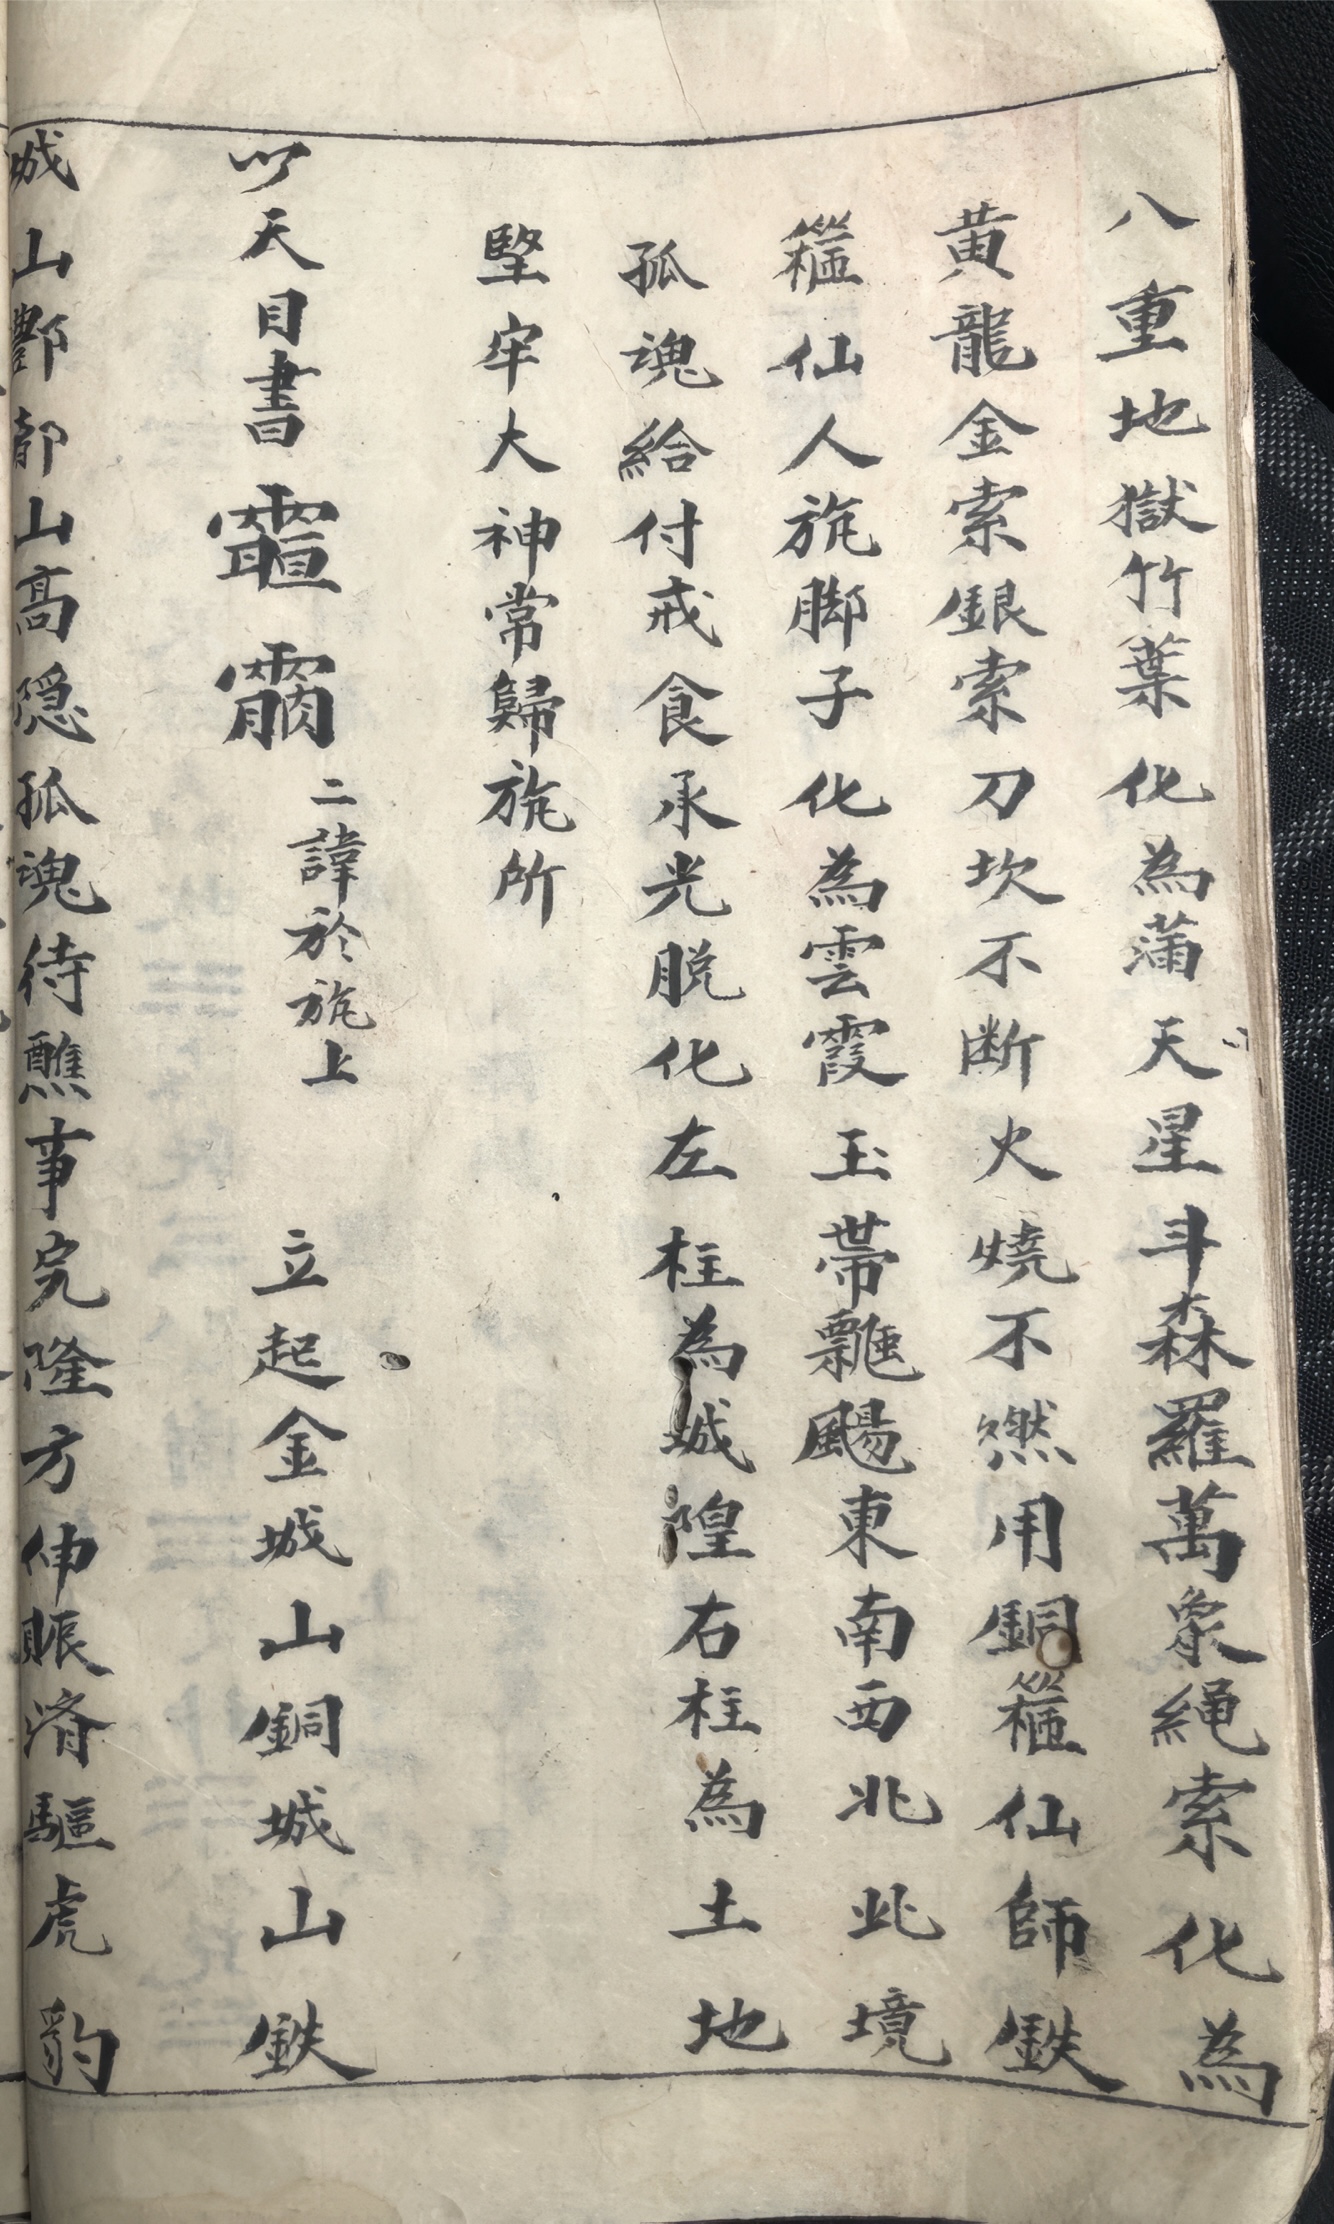 八重地獄竹葉化為蒲天星斗森羅萬象繩索化為
黃龍金索銀索刀坎不断火燒不燃用銅箍仙師鉄
箍仙人旐脚子化為雲霞玉帶飄颺東南西北此境
孤魂給付戒食承光脱化左柱為城隍右柱為土地
堅牢大神常歸旐所
以天目書
二諱於旐上
立起金城山銅城山鉄
城山酆都山高隐孤魂待醮事完隆方伸賑濟驅虎豹